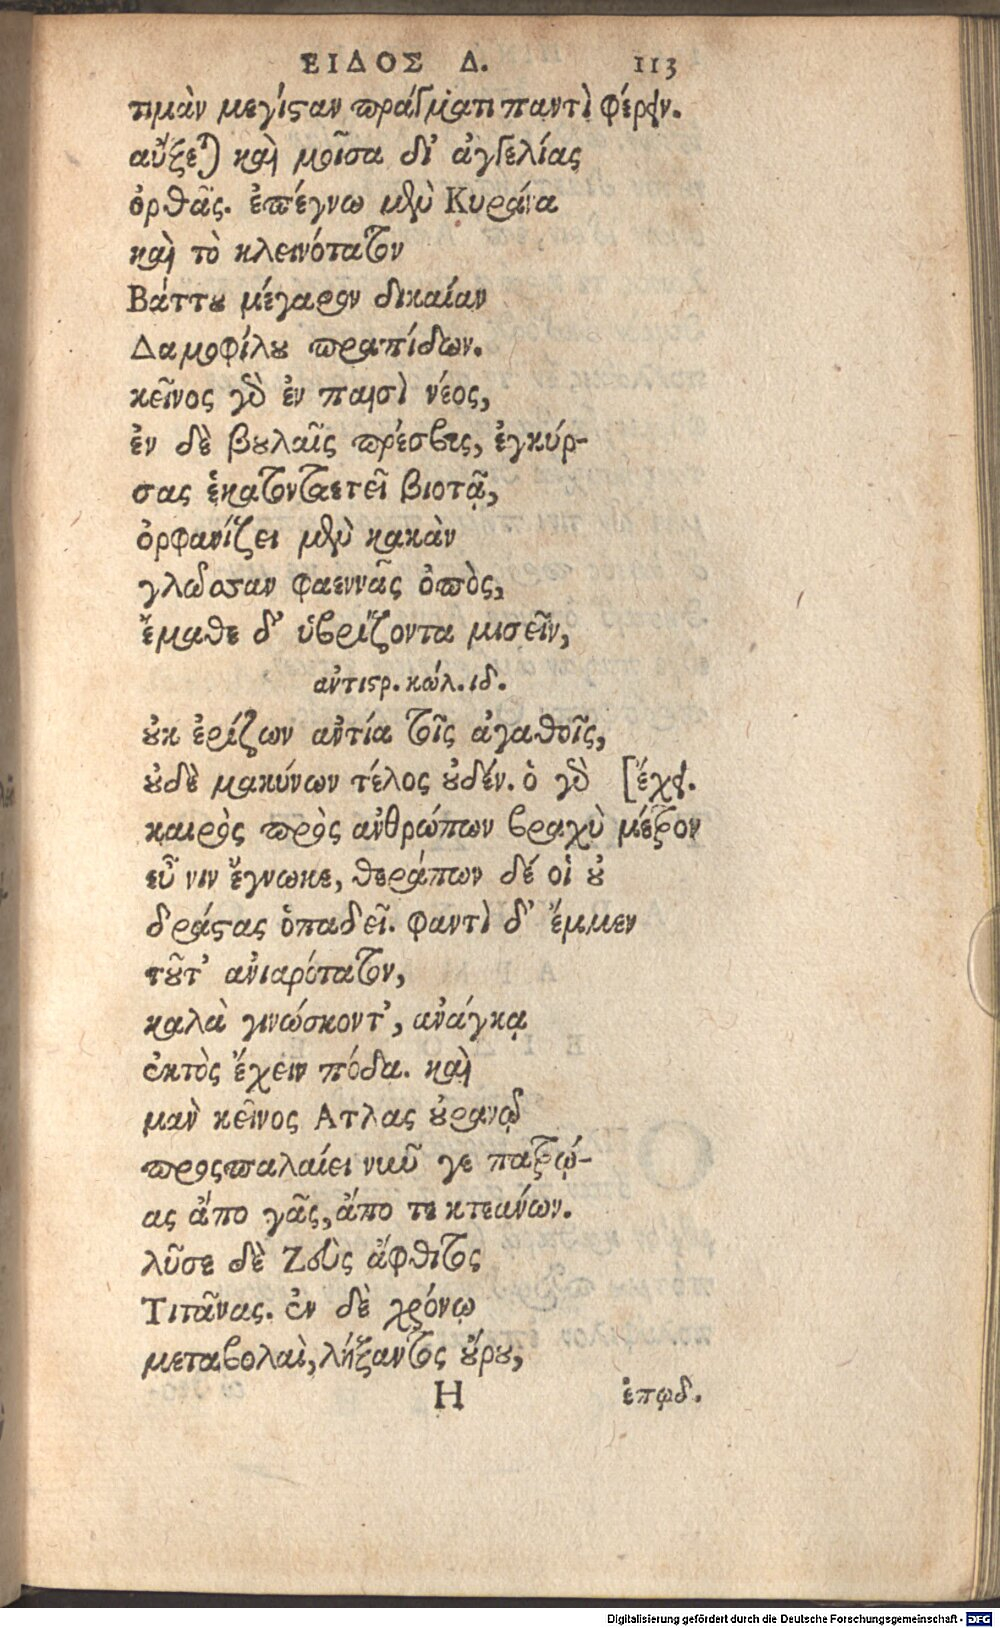 ΕΙΔΟΣ Δ. 113
τιμὰν μεγίσταν πράγματι παντὶ φέρειν.
αὔξεται καὶ μοῖσα δι' ἀγγελίας
ὀρθᾶς. ἐπέγνω μὲν Κυράνα
καὶ τὸ κλεινότατον
Βάττου μέγαρον δικαίαν
Δαμοφίλου πραπίδων.
κεῖνος γὸ ἐν παισὶ νέος,
ἐν δὲ βουλαῖς πρέσβις, ἐγκύρ-
σας ἑκατονταετεῖ βιοτᾷ,
ὀρφανίζει μὲν κακὰν
γλῶοσαν φαεννᾶς ὀπὸς,
ἔμαθε δ' ὑβρίζοντα μισεῖν,
ἀντιστρ. κώλ. ιδ.
οὐκ ἐρίζων ἀντία τοῖς ἀγαθοῖς,
οὐδὲ μακύνων τέλος οὐδέν. ὁ γὸ [ἔχει.
καιρὸς πρὸς ἀνθρώπων βραχὺ μέτρον
εὖ νιν ἔγνωκε, θεράπων δέ οἱ οὐ
δράστας ὀπαδεῖ. φαντὶ δ' ἔμμεν
τοῦτ' ἀνιαρότατον,
καλὰ γινώσκοντ', ἀνάγκᾳ
ἐκτὸς ἔχειν πόδα. καὶ
μὰν κεῖνος Ατλας οὐρανῷ
προςπαλαίει νῦν γε πατρῴ-
ας ἄπο γᾶς, ἄπο τε κτεάνων.
λῦσε δὲ Ζεὺς ἄφθιτος
Τιτᾶνας. ἐν δὲ χρόνῳ
μεταβολαὶ, λήξαντος οὔρου,
Η ἐπῳδ.
Digitalisierung gefördert durch die Deutsche Forschungsgemeinschaft - DFG